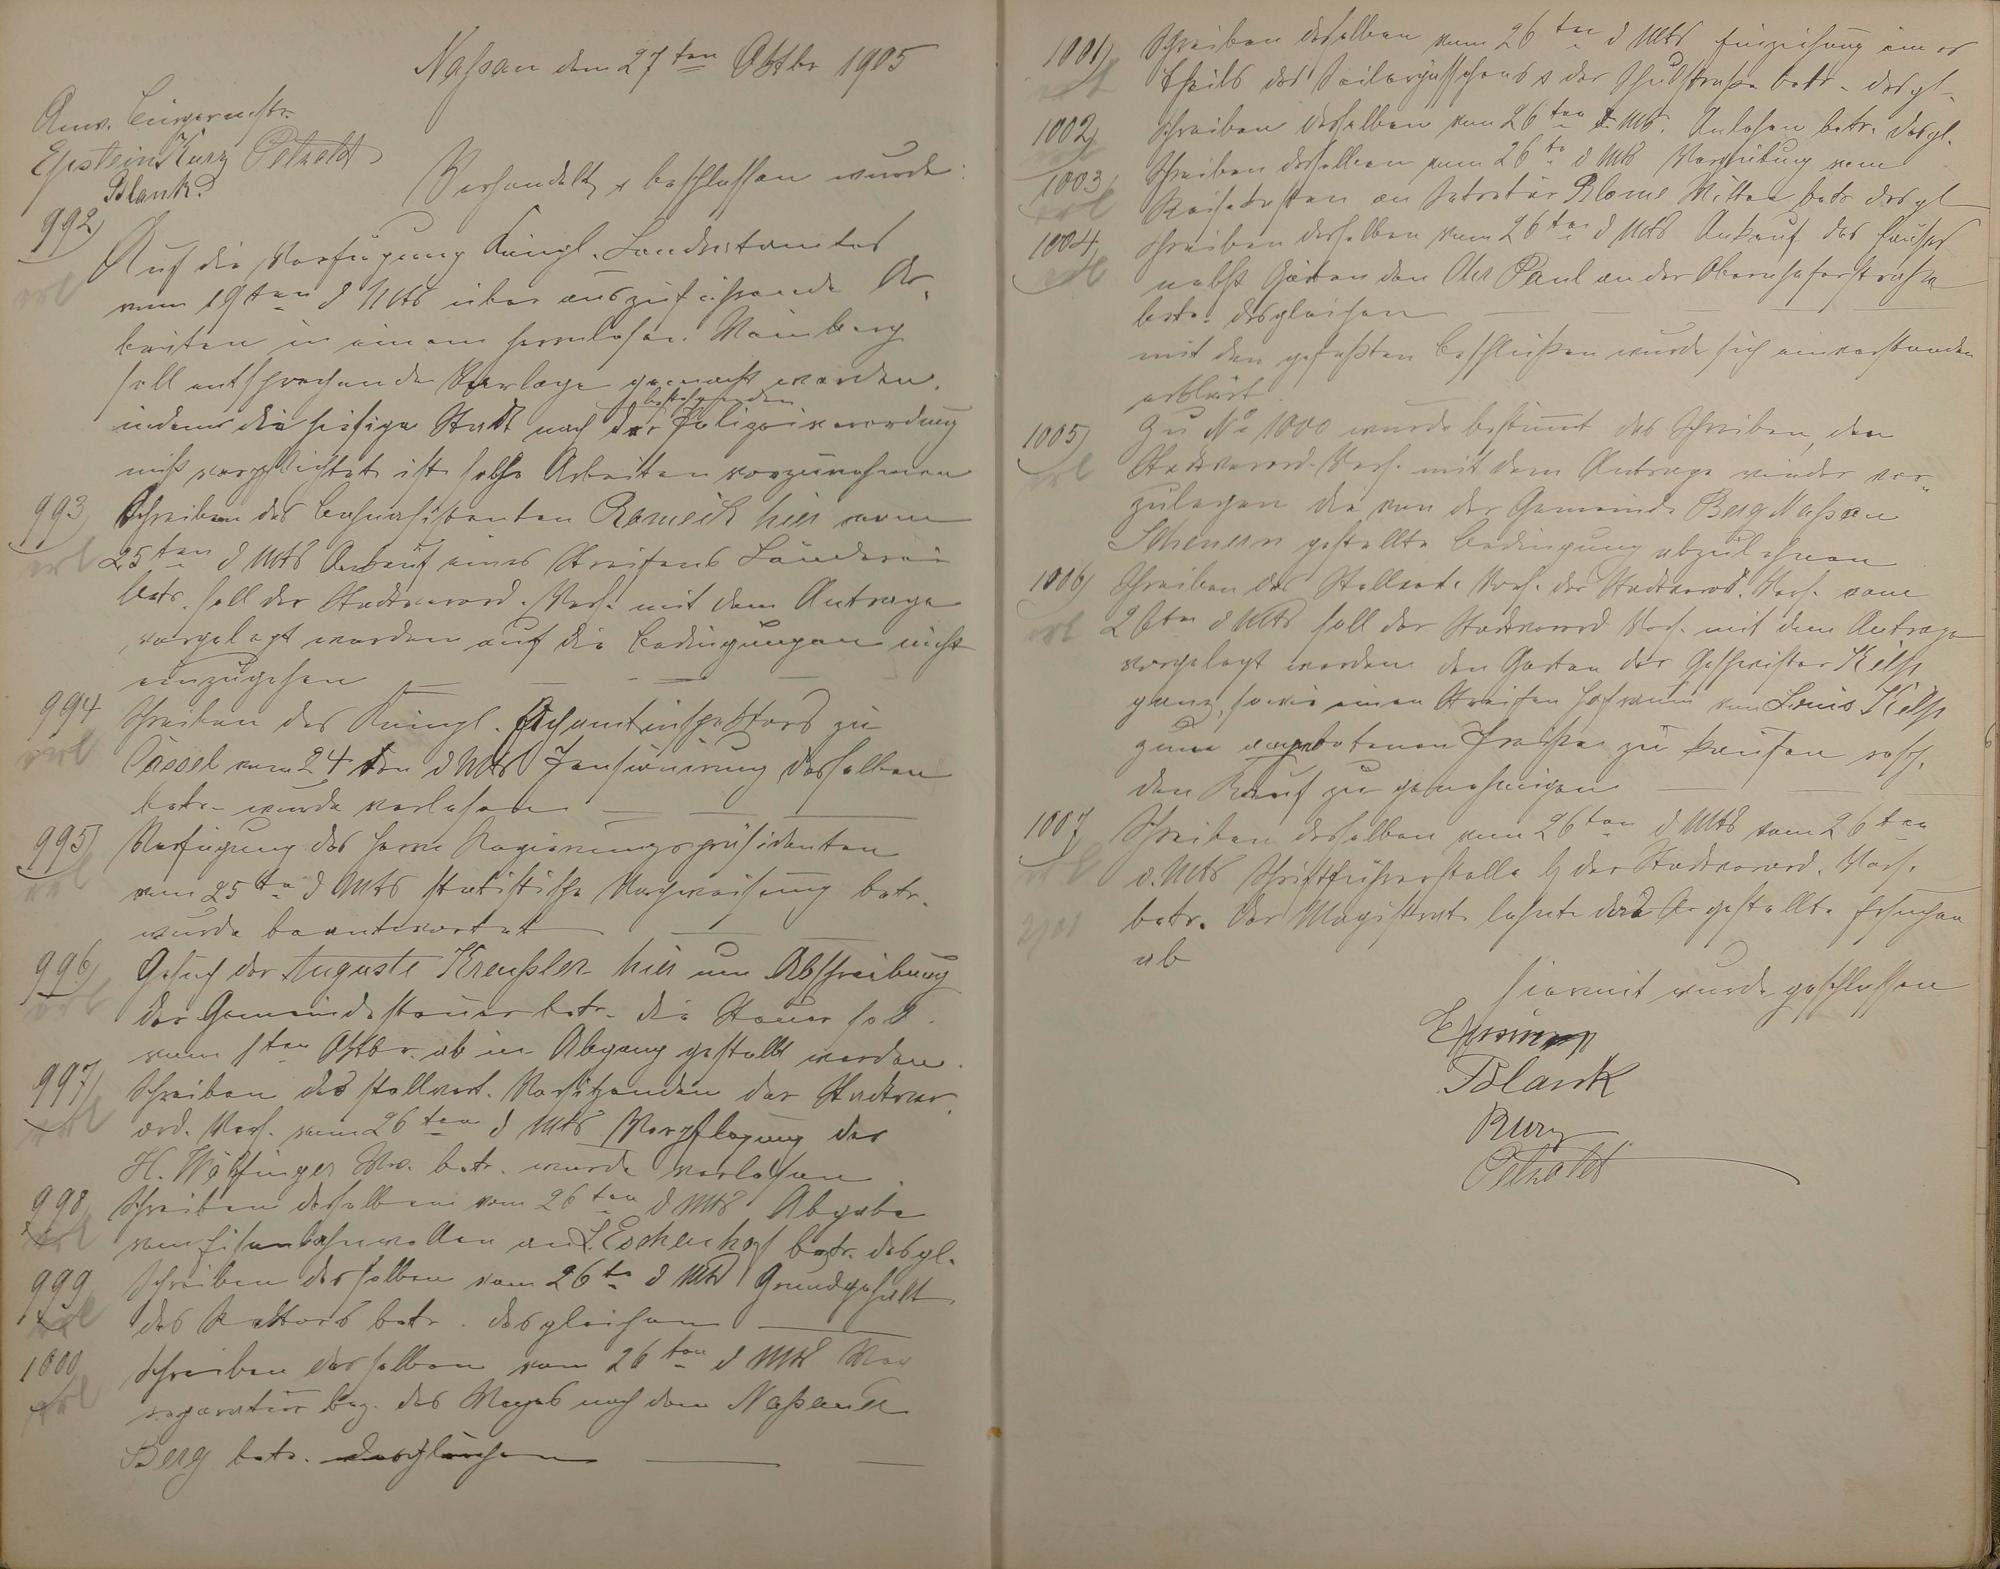 Naßau den 27ten Oktbr 1905
Anw. Bürgermstr.
Epstein Kurz Petzold
Blank.
Verhandelt & beschlossen wurde:
992) Auf die Verfügung Königl. Landratamtes
erl vom 19ten d Mts über auszuführende Ar-
beiten in einem herrnlosen Weinberg
soll entsprechende Vorlage gemacht werden,
bestehenden
indem die hiesige Stadt nach der Polizeiverordnung
nicht verpflichtet ist solche Arbeiten vorzunehmen
993) Schreiben des Bahnassistenten hier vom
erl 25ten d Mts Ankauf eines Streifens Länderei
betr. soll der Stadtverord. Vers. mit dem Antrage
vorgelegt werden auf die Bedingungen nicht
einzugehen
994 Schreiben des Königl. Aichamtinspektors zu
erl Cassel vom 24ten d Mts Pensionirung desselben
betr. wurde verlesen
995) Verfügung des Herrn Regierungspräsidenten
erl vom 25ten d Mts statistische Nachweisung betr.
wurde beantwortet
996) Gesuch der Auguste Kreußler hier um Abschreibung
erl der Gemeindesteuer betr. die Steuer soll
vom 1ten Oktbr. ab in Abgang gestellt werden.
997) Schreiben des stellvert. Vorsitzenden der Stadtver-
erl ord. Vers. vom 26ten d Mts Verpflegung der
H. Wölfinger Ww. betr. wurde verlesen
998) Schreiben desselben vom 26ten d Mts Abgabe
erl von an L. betr. desgl.
999 Schreiben desselben vom 26tn d Mts Grundgehalt
erl des Rektors betr. desgleichen
1000 Schreiben desselben vom 26ten d Mts We
erl reparatur bez. des Weges nach dem Naßauer
Berg betr. desgleichen
1001) Schreiben desselben vom 26ten d Mts Einziehung eines
erl Theils des & der Schulstraße betr. desgl.
1002) Schreiben desselben vom 26ten d. Mts. Anlehen betr. desgl.
1003) Schreiben desselben vom 26tn d Mts Vergütung von
erl Reisekosten an Sekretär Blome Witten betr. desgl
1004, Schreiben desselben vom 26ten d Mts Ankauf des Hauses
erl nebst Garten den Chr Paul an der Obernhoferstraße
betr. desgleichen
mit den gefaßten Beschlüßen wurde sich einverstanden
erklärt.
1005) Zu No 1000 wurde bestimmt das Schreiben, der
erl Stadtverord. Vers. mit dem Antrage wieder vor-
zulegen die von der Gemeinde Berg Naßau
Scheuern gestellte Bedingung abzulehnen
1006) Schreiben des Stellvert. Vors. der Stadtverord. Vers. vom
erl 26tn d Mts soll der Stadtverord Vers. mit dem Antrage
vorgelegt werden den Garten der Geschwister
ganz, sowie einen Streifen Hofraum von Louis
zum angebotenen Preise zu kaufen resp.
den Kauf zu genehmigen
1007 Schreiben desselben vom 26ten d Mts vom 26ten
erl d. Mts Schriftführerstelle b. der Stadtverord. Vers.
betr. Der Magistrat lehnte das gestellte Ersuchen
ab
Hiermit wurde geschlossen
Blank
Kurz
Petzold